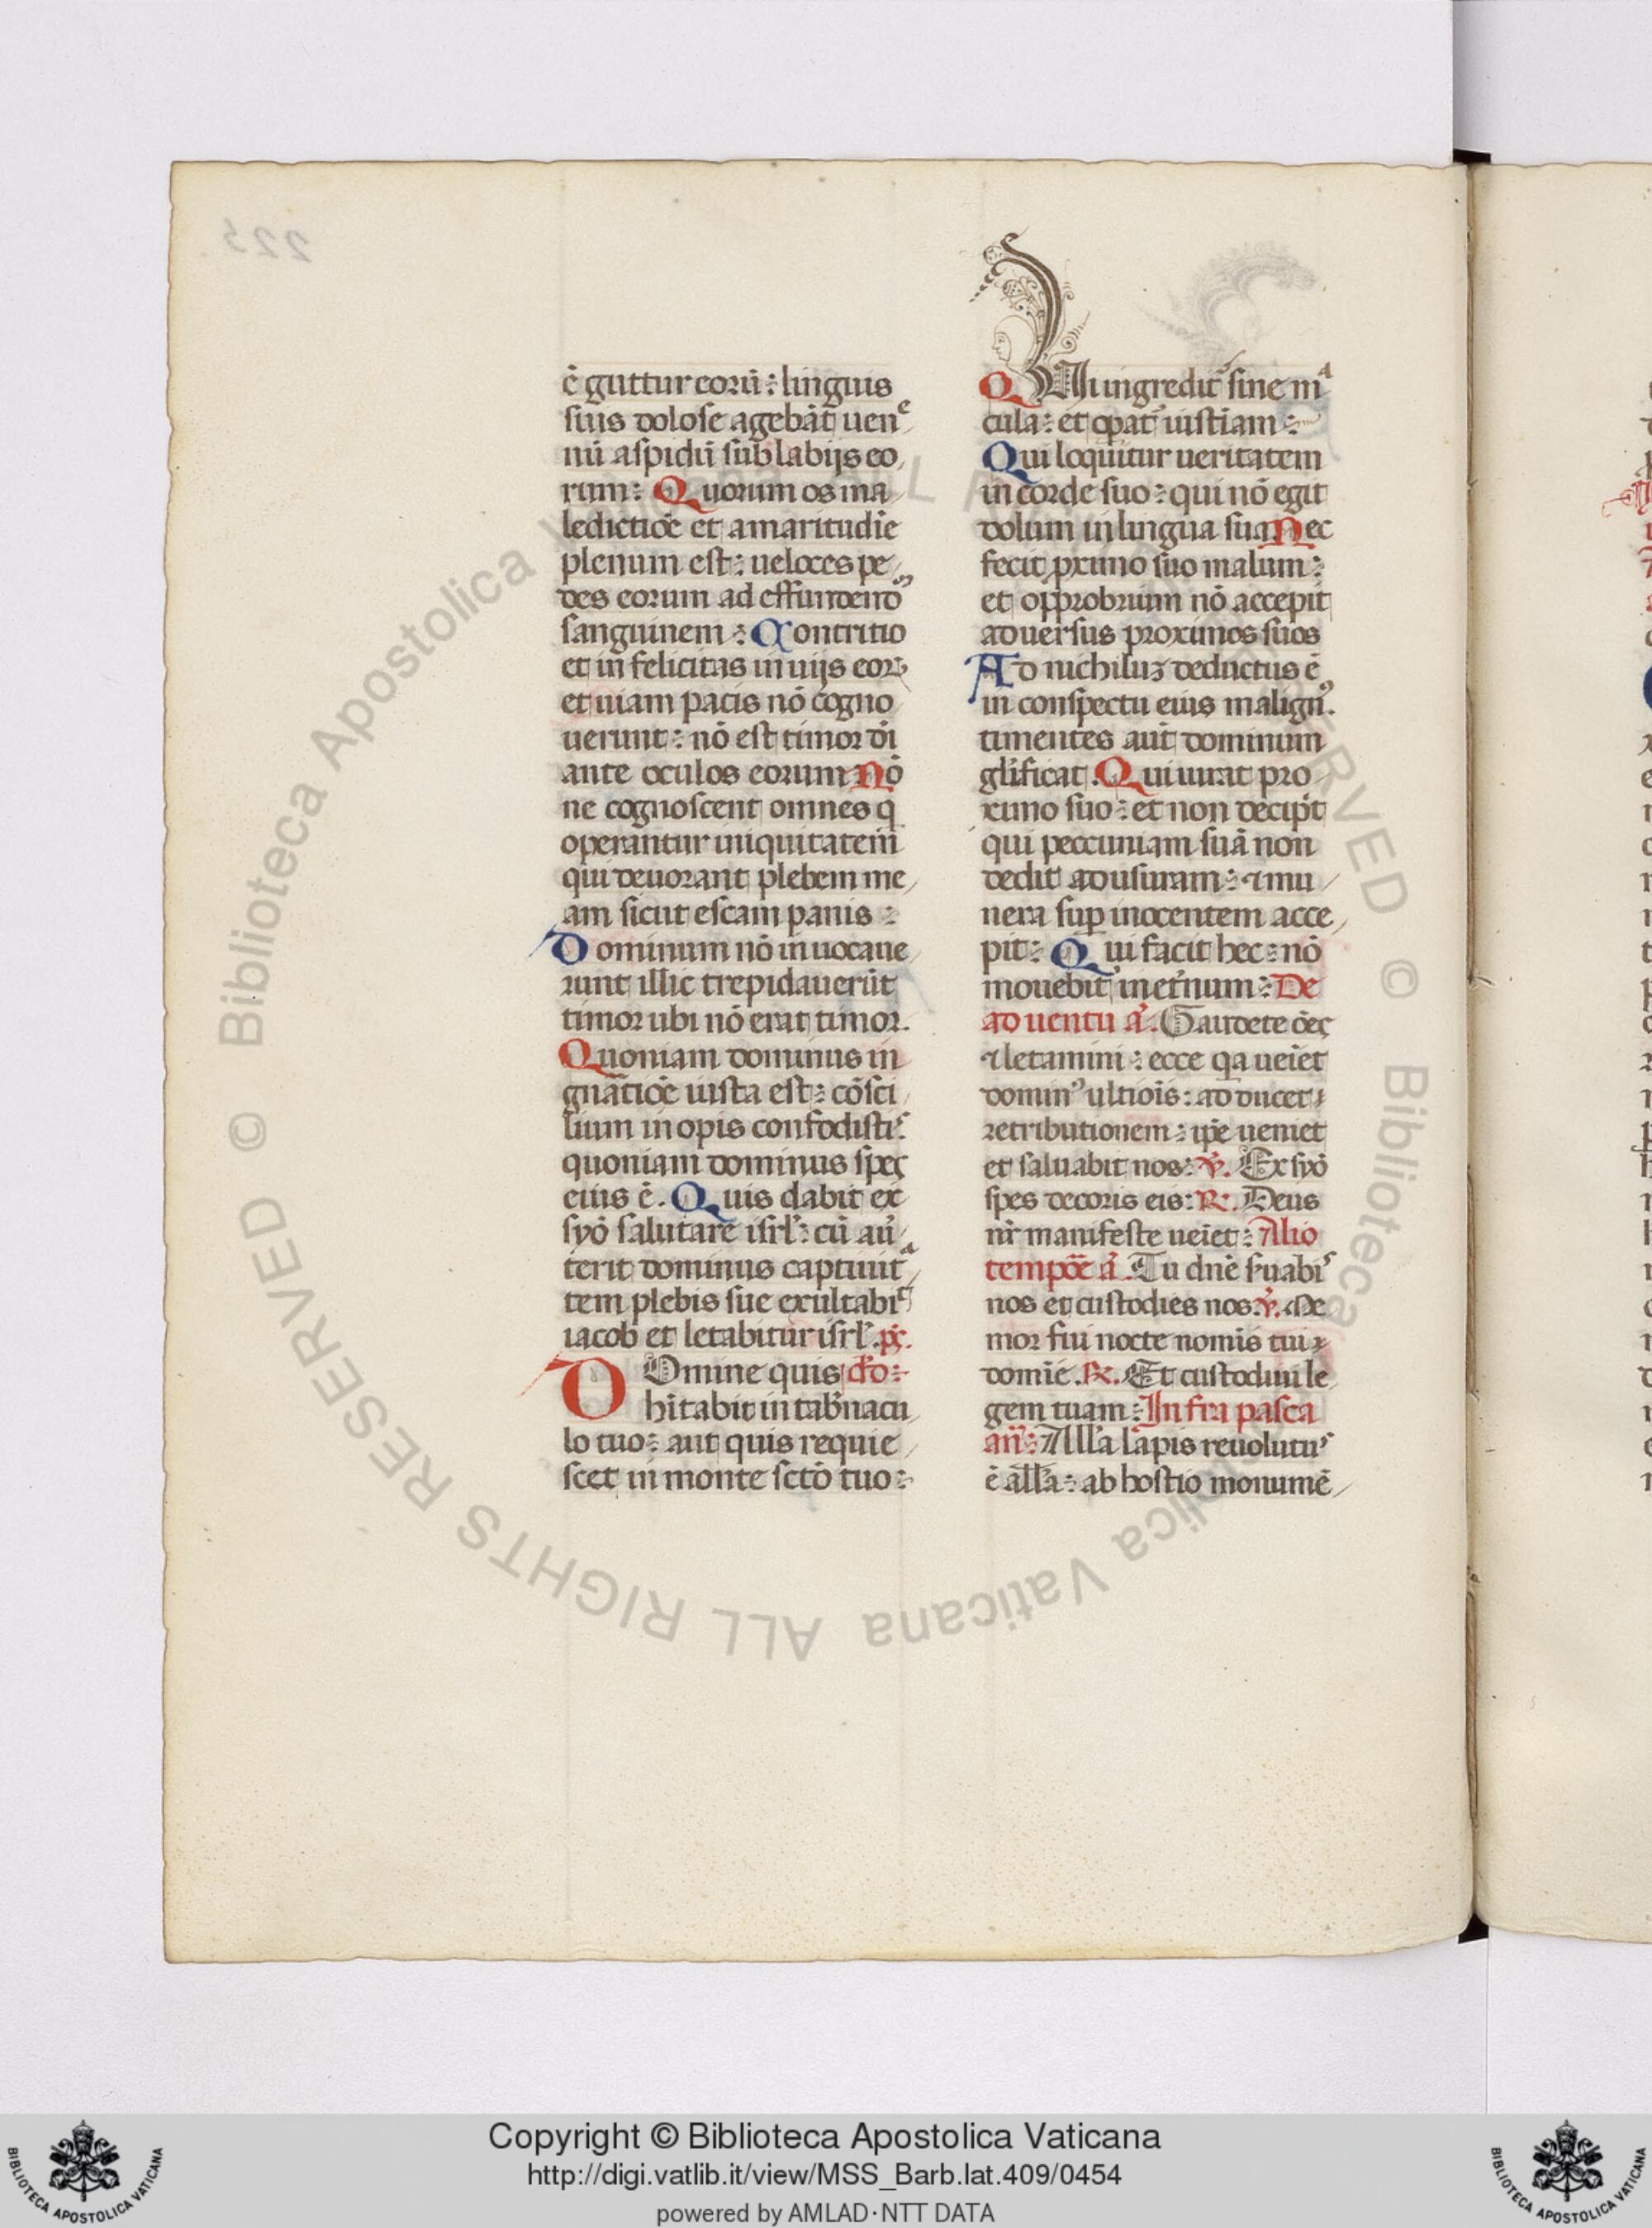 223
ē guttur eorū: linguis
suis dolose agebāt uene
nū aspidū sub labijs eo
rum: Quorum os ma
ledictiōe et amaritudīe
plenum est: ueloces pe
des eorum ad effundendō
sanguinem: Contritio
et in felicitas in uijs eoꝝ
et uiam pacis nō cogno
uerunt: nō est timor dī
ante oculos eorum Nō
ne cognoscent omnes q
operantur iniquitatem
qui deuorant plebem me
am sicut escam panis:
Dominum nō inuocaue
runt illic trepidauerūt
timor ubi nō erat timor.
Quoniam dominus in
gnatiōe iusta est: cōsci
lium in opis confodistis
quoniam dominus spes
eius ē. Quis dabit ex
syō salutare isrl̓: cū au̓
terit dominus captiuita
tem plebis sue exultabit̉
iacob et letabitur isrl̓. ps̄.
DOmine quis do:
hitabit in tab̓nacu
lo tuo: aut quis requie
scet in monte sctō tuo:
QUi ingredit̉ sine ma
cula: et opat̉ iustīam:
Qui loquitur ueritatem
in corde suo: qui nō egit
dolum in lingua sua Nec
fecit ꝓximo suo malum:
et opprobrium nō accepit
aduersus proximos suos
Ad nichiluꝫ deductus ē
in conspectu eius malignꝰ.
timentes aūt dominum
gl̓ificat. Qui iurat pro
ximo suo: et non decipīt
qui peccuniam suā non
dedit ad usuram: ⁊ mu
nera suꝑ inocentem acce
pit: Qui facit hec: nō
mouebit̉ in et̓num: De
ad uentu a̓. Gaudete ōēs
⁊ letamini: ecce q̄a ueīet
dominꝰ ultiōīs: ad ducet ⁊
retributionem: ip̄e ueniet
et saluabit nos: ℣. Ex syō
spes decoris eis: R. Deus
nr̄ manifeste ueīet: Alio
tempōē a̓. Tu dn̄e s̓uabis
nos et custodies nos. ℣. Me
mor fui nocte nomīs tui ⁊
domīe. R. Et custodiui le
gem tuam: In fra pasca
an̄: All̓a lapis reuolutus
ē all̓a: ab hostio monumē
© Biblioteca Apostolica Vaticana ALL RIGHTS RESERVED © Biblioteca Apostolica Vaticana ALL RIGHTS RESERVED
Copyright © Biblioteca Apostolica Vaticana
http://digi.vatlib.it/view/MSS_Barb.lat.409/0454
powered by AMLAD·NTT DATA
BIBLIOTECA APOSTOLICA VATICANA
BIBLIOTECA APOSTOLICA VATICANA